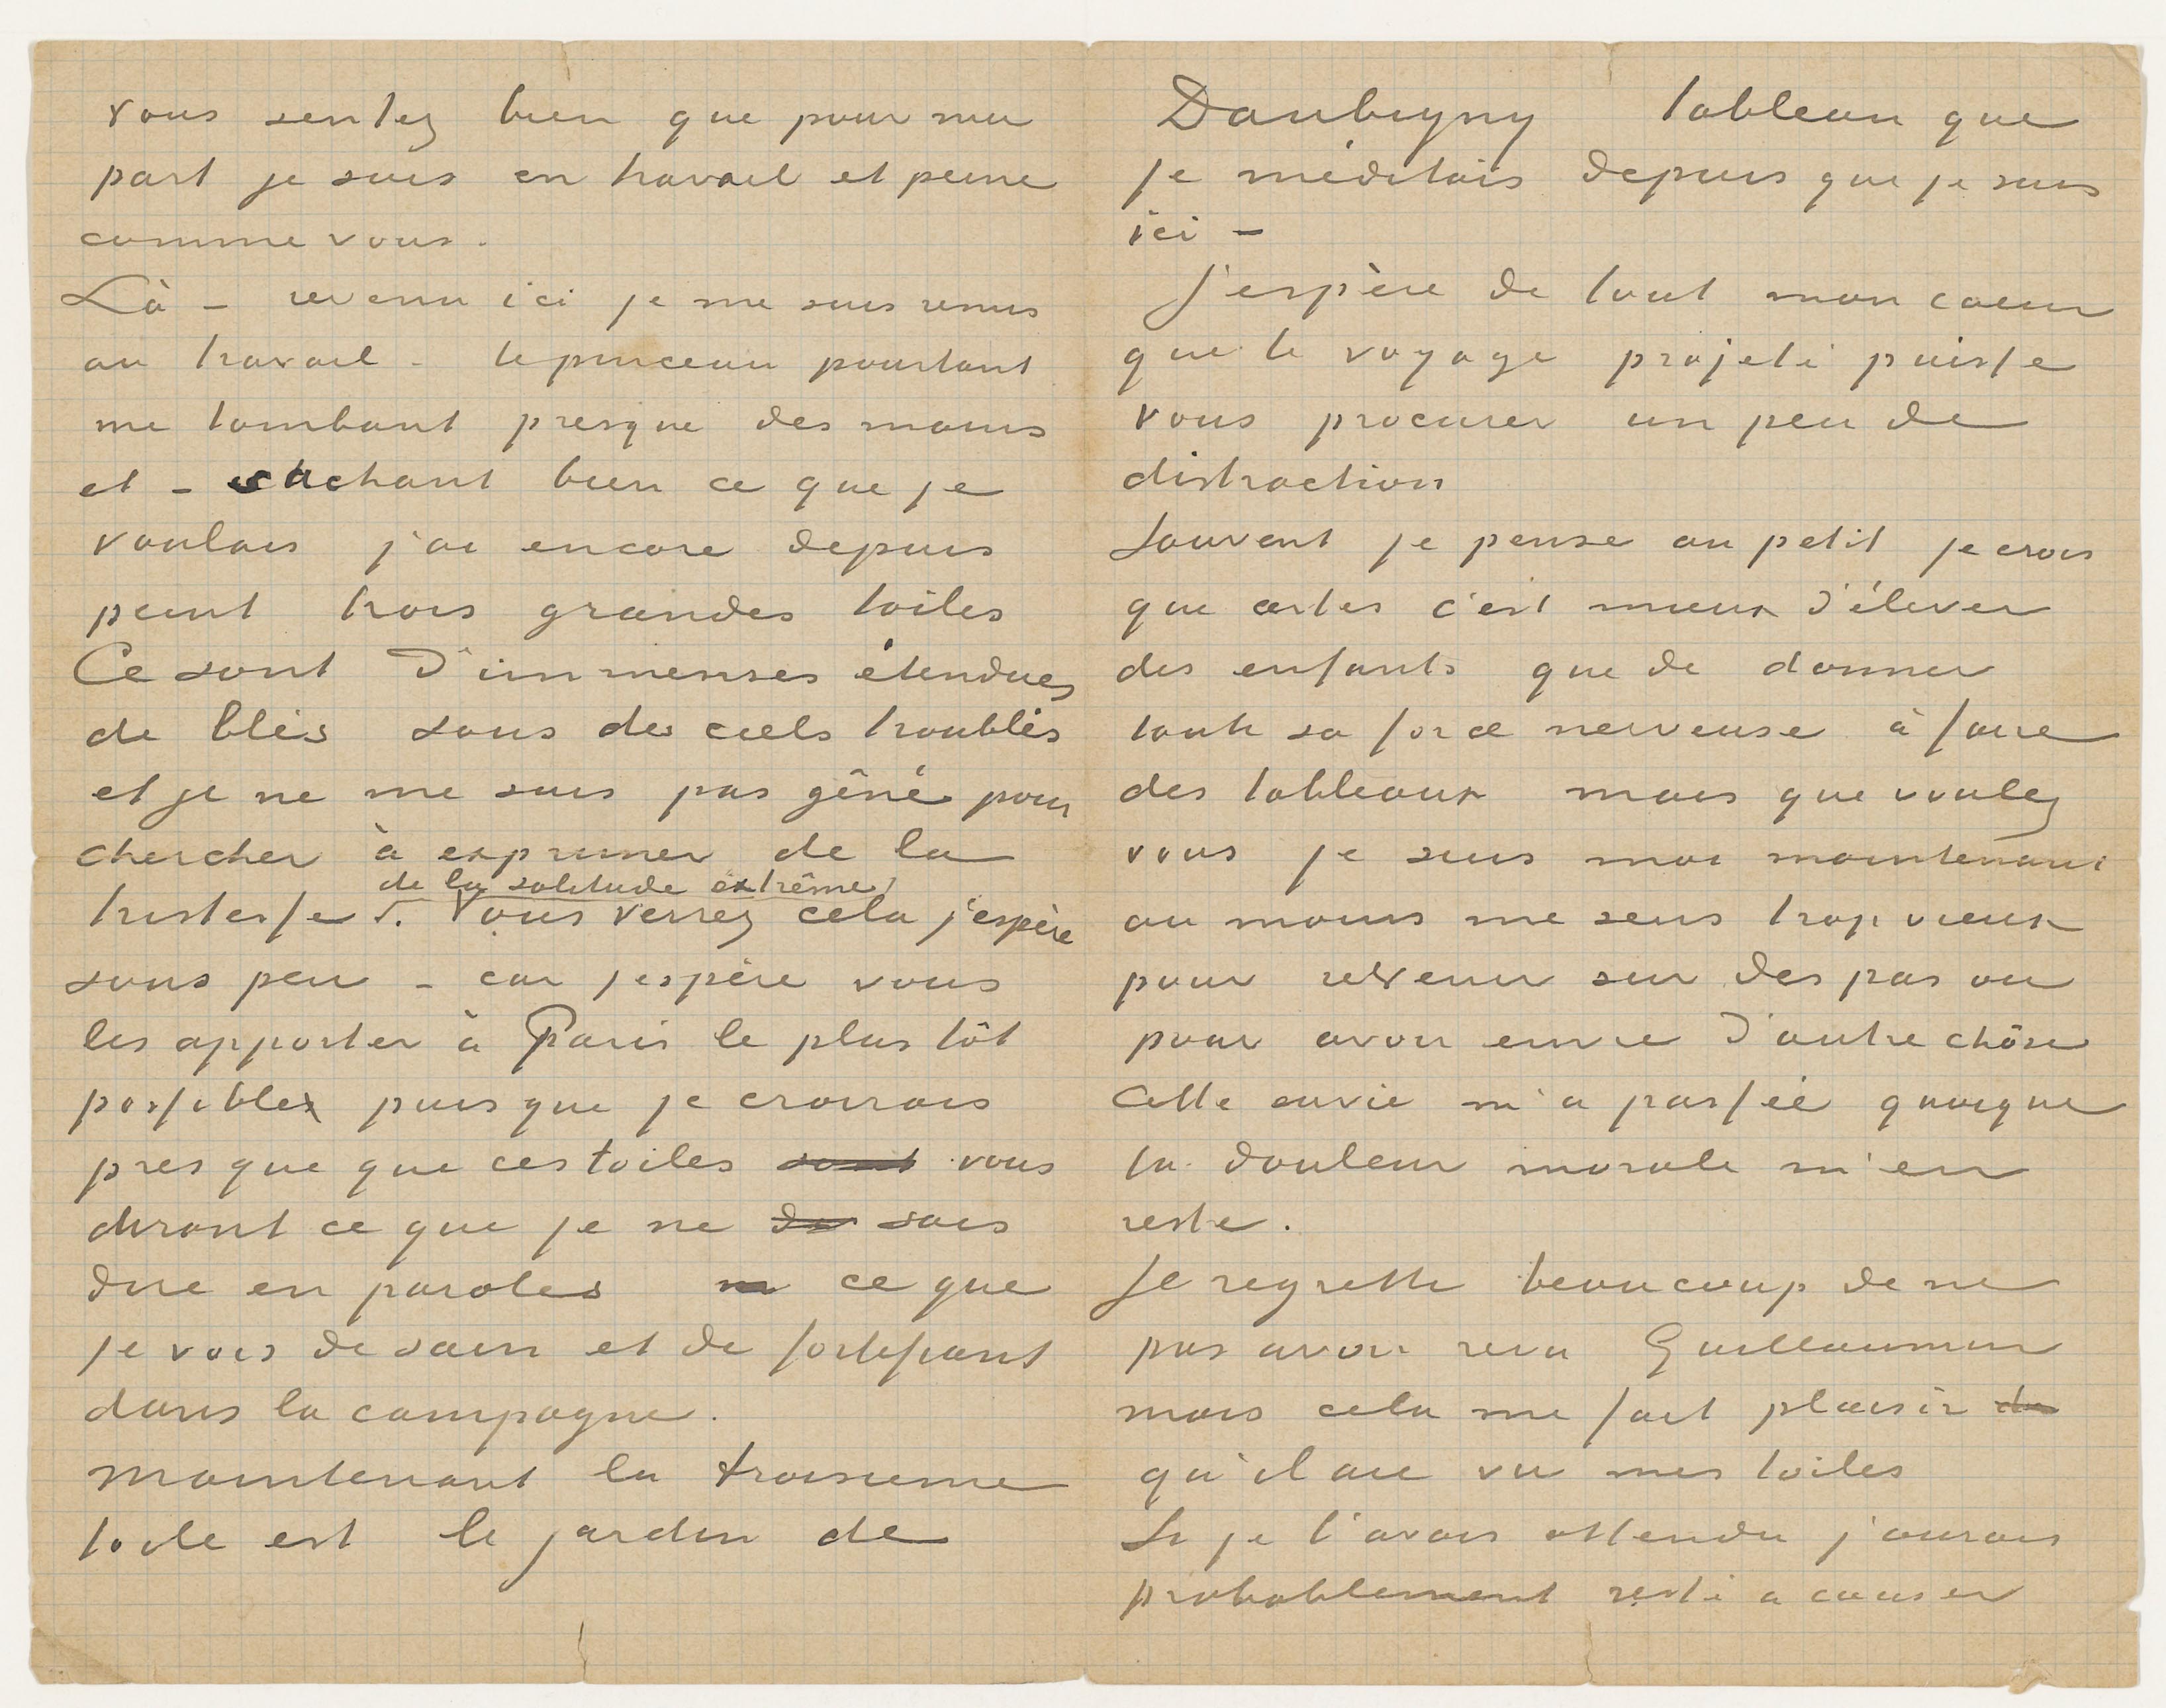 vous sentez bien que pour ma
part je suis en travail et peine
comme vous.
Là – revenu ici je me suis remis
au travail – le pinceau pourtant
me tombant presque des mains
et – sachant bien ce que je
voulais j'ai encore depuis
peint trois grandes toiles
Ce sont d'immenses étendues
de blés sous des ciels troublés
et je ne me suis pas gêné pour
chercher à exprimer de la
de la solitude extrême
tristesse. Vous verrez cela j'espère
sous peu – car j'espère vous
les apporter à Paris le plus tôt
possible puisque je croirais
presque que ces toiles sont vous
diront ce que je ne sais
dire en paroles ce que
je vois de sain et de fortifiant
dans la campagne.
Maintenant la troisieme
toile est le jardin de
Daubigny tableau que
je méditais depuis que je suis
ici –
J'espère de tout mon coeur
que le voyage projeté puisse
vous procurer un peu de
distraction
Souvent je pense au petit je crois
que certes c'est mieux d'élever
des enfants que de donner
toute sa force nerveuse à faire
des tableaux mais que voulez
vous je suis moi maintenant
au moins me sens trop vieux
pour revenir sur des pas ou
pour avoir envie d'autre chôse
Cette envie m'a passéé quoique
la douleur morale m'en
reste.
Je regrette beaucoup de ne
pas avoir revu Guillaumin
mais cela me fait plaisir de
qu'il aie vu mes toiles
Si je l'avais attendu j'aurais
probablement resté a causer